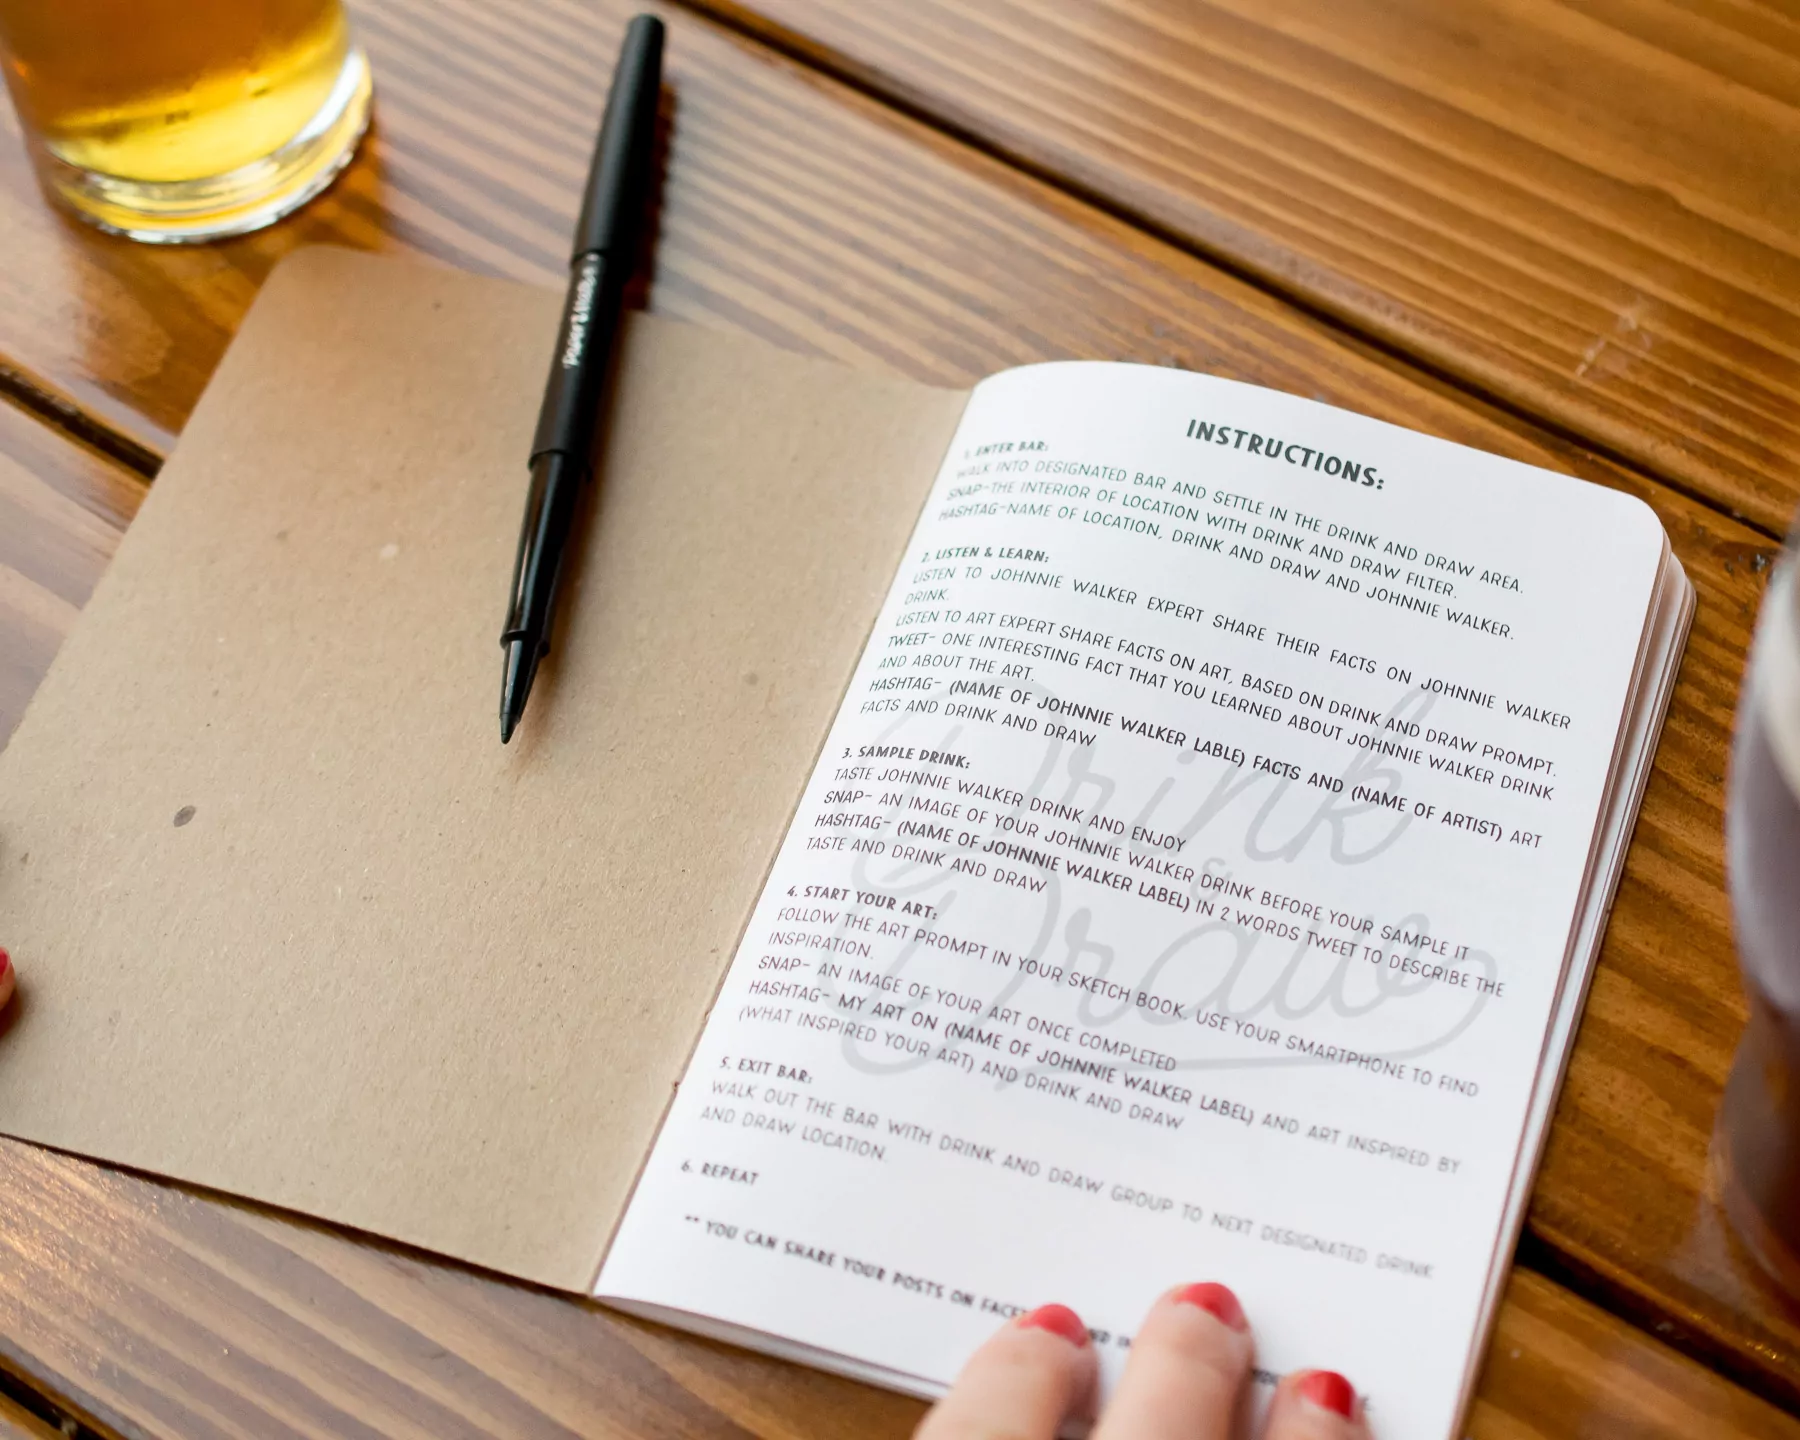 Paper Mate
INSTRUCTIONS:
1. ENTER BAR:
WALK INTO DESIGNATED BAR AND SETTLE IN THE DRINK AND DRAW AREA.
SNAP-THE INTERIOR OF LOCATION WITH DRINK AND DRAW FILTER.
HASHTAG-NAME OF LOCATION, DRINK AND DRAW AND JOHNNIE WALKER.
2. LISTEN & LEARN:
LISTEN TO JOHNNIE WALKER EXPERT SHARE THEIR FACTS ON JOHNNIE WALKER
DRINK.
LISTEN TO ART EXPERT SHARE FACTS ON ART, BASED ON DRINK AND DRAW PROMPT.
TWEET- ONE INTERESTING FACT THAT YOU LEARNED ABOUT JOHNNIE WALKER DRINK
AND ABOUT THE ART.
HASHTAG- (NAME OF JOHNNIE WALKER LABLE) FACTS AND (NAME OF ARTIST) ART
FACTS AND DRINK AND DRAW
3. SAMPLE DRINK:
TASTE JOHNNIE WALKER DRINK AND ENJOY
SNAP- AN IMAGE OF YOUR JOHNNIE WALKER DRINK BEFORE YOUR SAMPLE IT
HASHTAG- (NAME OF JOHNNIE WALKER LABEL) IN 2 WORDS TWEET TO DESCRIBE THE
TASTE AND DRINK AND DRAW
4. START YOUR ART:
FOLLOW THE ART PROMPT IN YOUR SKETCH BOOK. USE YOUR SMARTPHONE TO FIND
INSPIRATION.
SNAP- AN IMAGE OF YOUR ART ONCE COMPLETED
HASHTAG- MY ART ON (NAME OF JOHNNIE WALKER LABEL) AND ART INSPIRED BY
(WHAT INSPIRED YOUR ART) AND DRINK AND DRAW
5. EXIT BAR:
WALK OUT THE BAR WITH DRINK AND DRAW GROUP TO NEXT DESIGNATED DRINK
AND DRAW LOCATION.
6. REPEAT
** YOU CAN SHARE YOUR POSTS ON
Drink
&
Draw